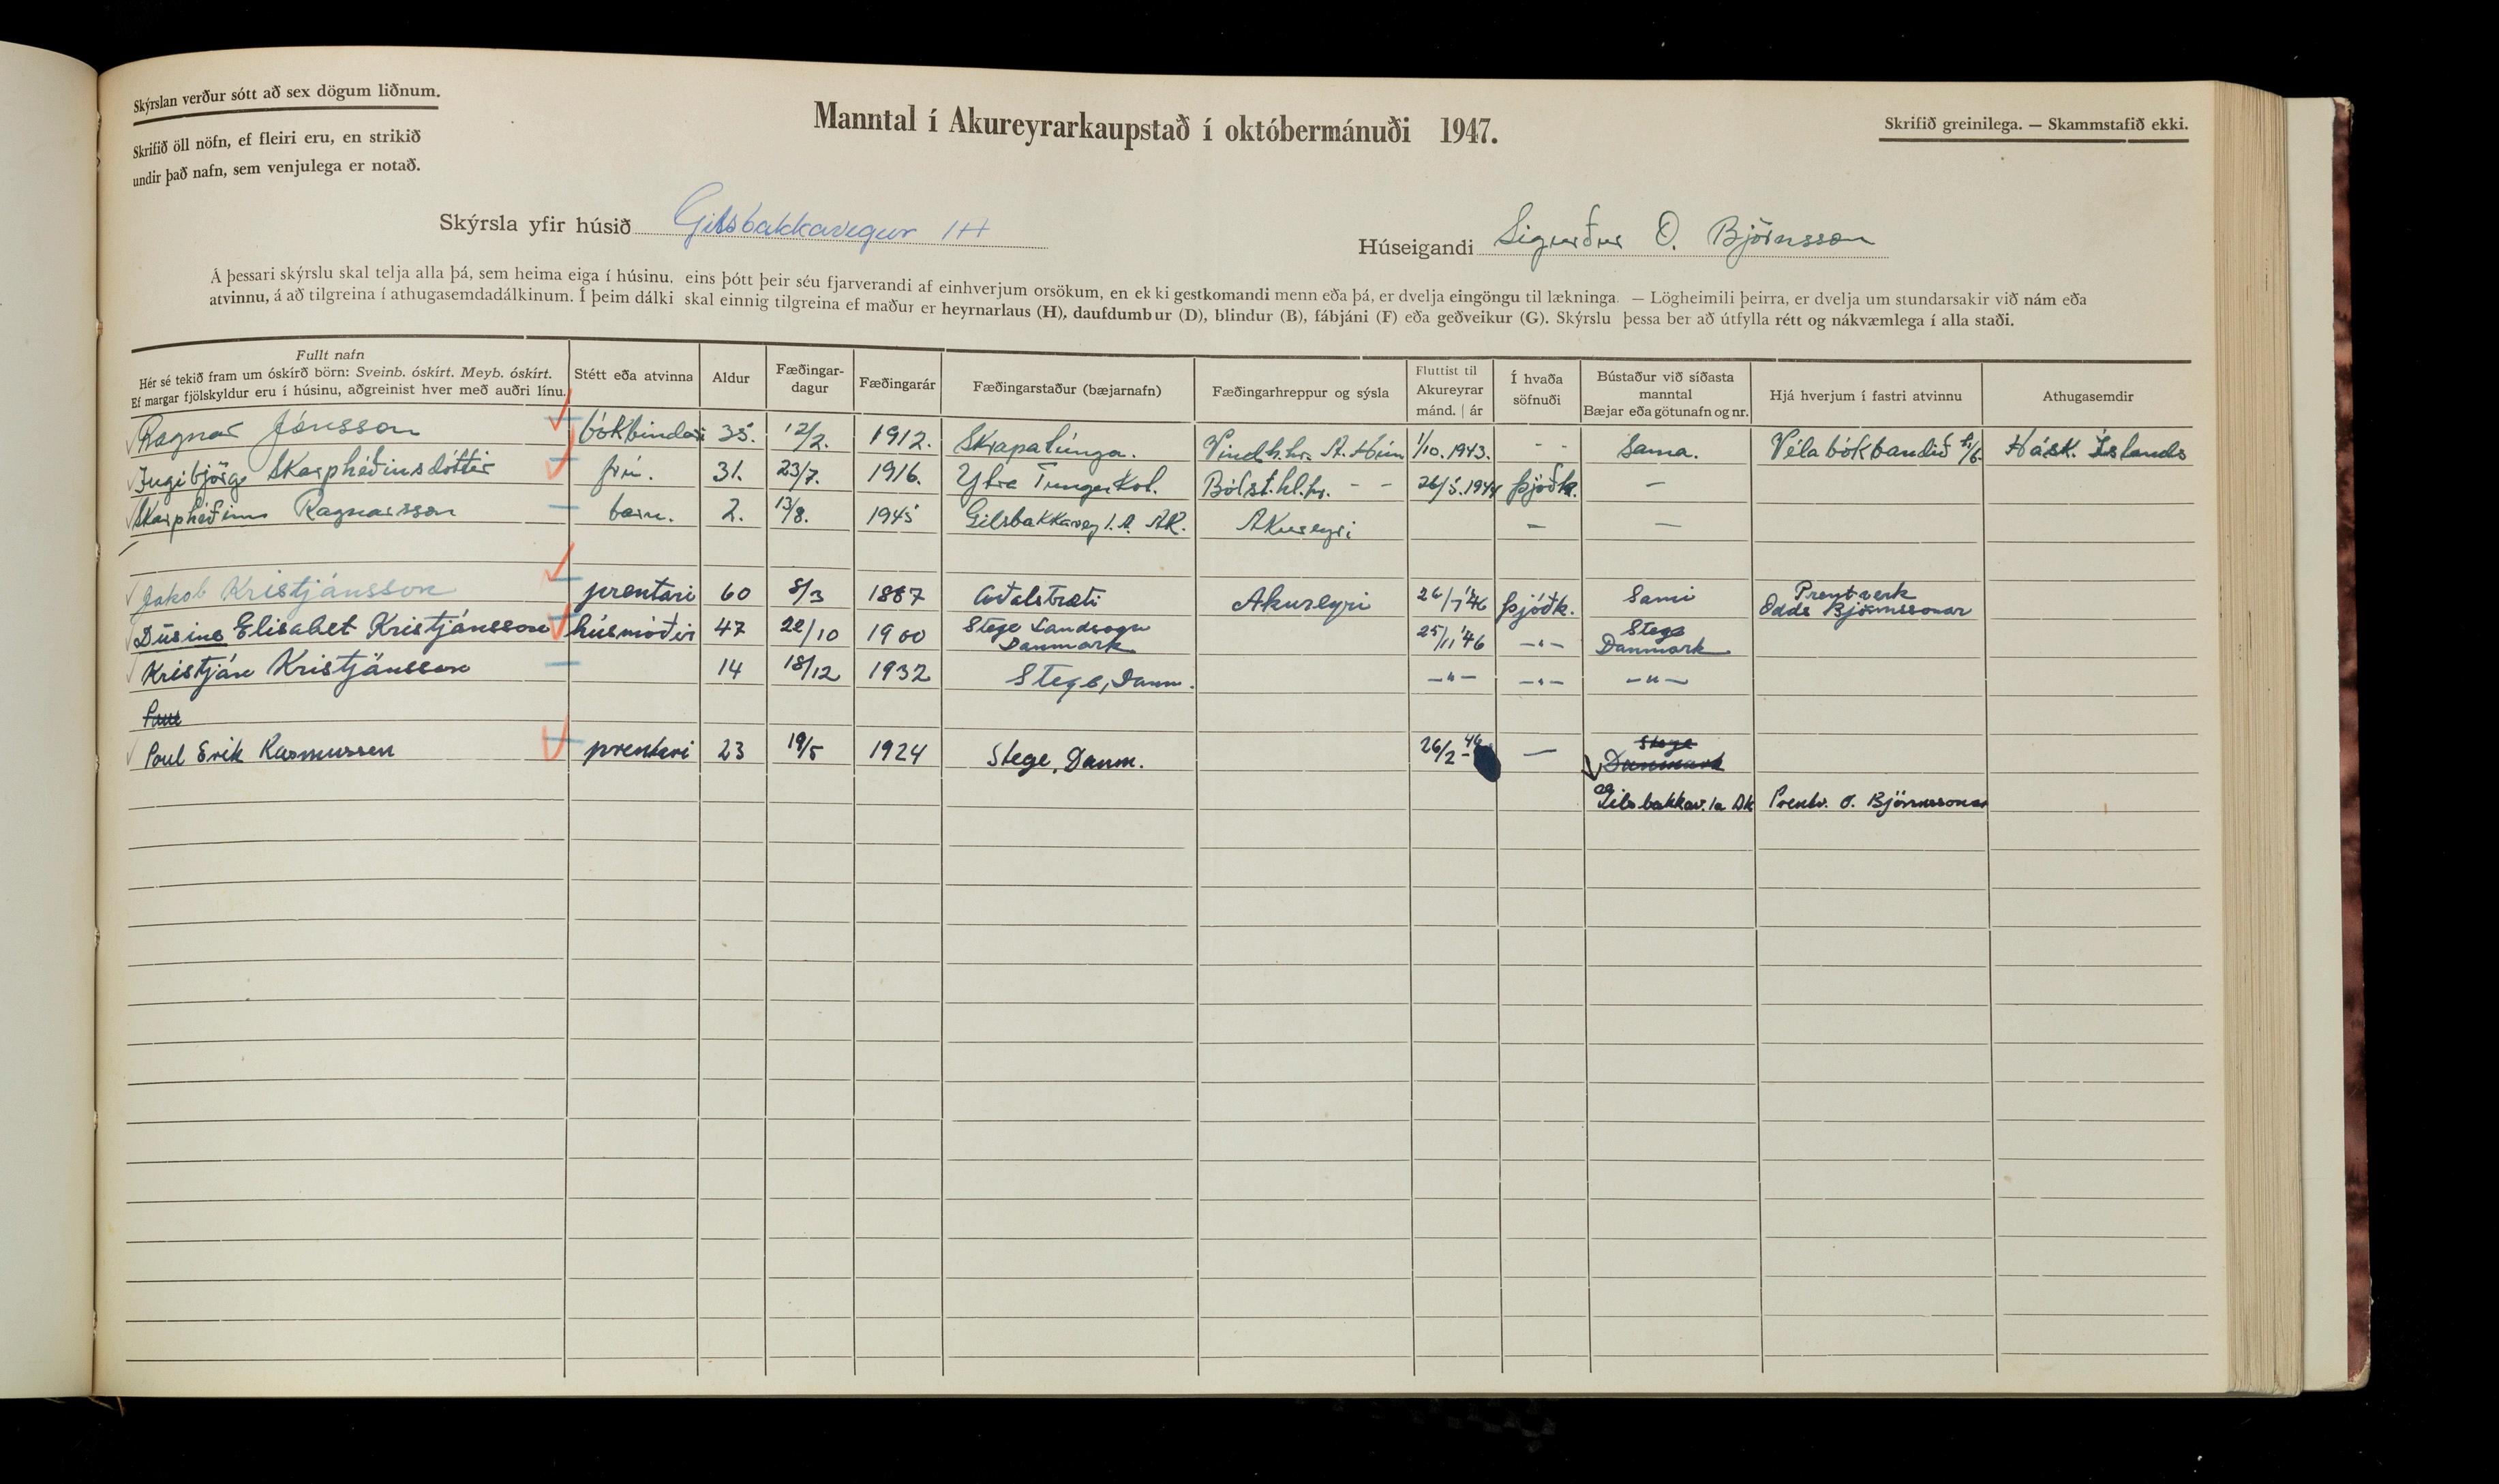 Skýrslan verður sótt að sex dögum liðnum.
Skrifið öll nöfn, ef fleiri eru, en strikið
undir það nafn, sem venjulega er notað.
Manntal í Akureyrarkaupstað í októbermánuði 1947.
Skrifið greinilega. — Skammstafið ekki.
Skýrsla yfir húsið Gilsbakkavegur 1
Húseigandi Sigurður O. Björnsson
Á þessari skýrslu skal telja alla þá, sem heima eiga í húsinu, eins þótt þeir séu fjarverandi af einhverjum orsökum, en ekki gestkomandi menn eða þá, er dvelja eingöngu til lækninga. — Lögheimili þeirra, er dvelja um stundarsakir við nám eða
atvinnu, á að tilgreina í athugasemdadálkinum. Í þeim dálki skal einnig tilgreina ef maður er heyrnarlaus (H), daufdumbur (D), blindur (B), fábjáni (F) eða geðveikur (G). Skýrslu þessa ber að útfylla rétt og nákvæmlega í alla staði.
Fullt nafn
Hér sé tekið fram um óskírð börn: Sveinb. óskírt. Meyb. óskírt.
Ef margar fjölskyldur eru í húsinu, aðgreinist hver með auðri línu.
Stétt eða atvinna
Aldur
Fæðingar-
dagur
Fæðingarár
Fæðingarstaður (bæjarnafn)
Fæðingarhreppur og sýsla
Fluttist til
Akureyrar
mánd. | ár
Í hvaða
söfnuði
Bústaður við síðasta
manntal
Bæjar eða götunafn og nr.
Hjá hverjum í fastri atvinnu
Athugasemdir
Ragnar Jónsson bókbindari 35. 12/2. 1912. Skrapatúnga. Vindh.hr. A. Hún 1/10. 1943. - - Sama. Véla bókbandið h/f Hásk. Íslands
Ingibjörg Skarphéðinsdóttir frú. 31. 23/7. 1916. Ytra Tungukot. Bólst.hl.hr. - - 26/5. 1944 þjóðk. —
Skarphéðinn Ragnarsson barn. 2. 13/8. 1945 Gilsbakkaveg 1. A. AK. Akureyri — —
Jakob Kristjánsson prentari 60 8/3 1887 Aðalstræti Akureyri 26/7 '46 þjóðk. Sami Prentverk
Odds Björnssonar
Düsine Elisabet Kristjánsson húsmóðir 47 22/10 1900 Stege Landsogn
Danmark 25/11 '46 -"- Stege
Danmark
Kristján Kristjánsson 14 18/12 1932 Stege, Danm. -"- -"- -"-
Poul
Poul Erik Rasmussen prentari 23 19/5 1924 Stege, Danm. 26/2 - 46 — Stege
Danmark
Gilsbakkav. 1a Ak Prentv. O. Björnssonar